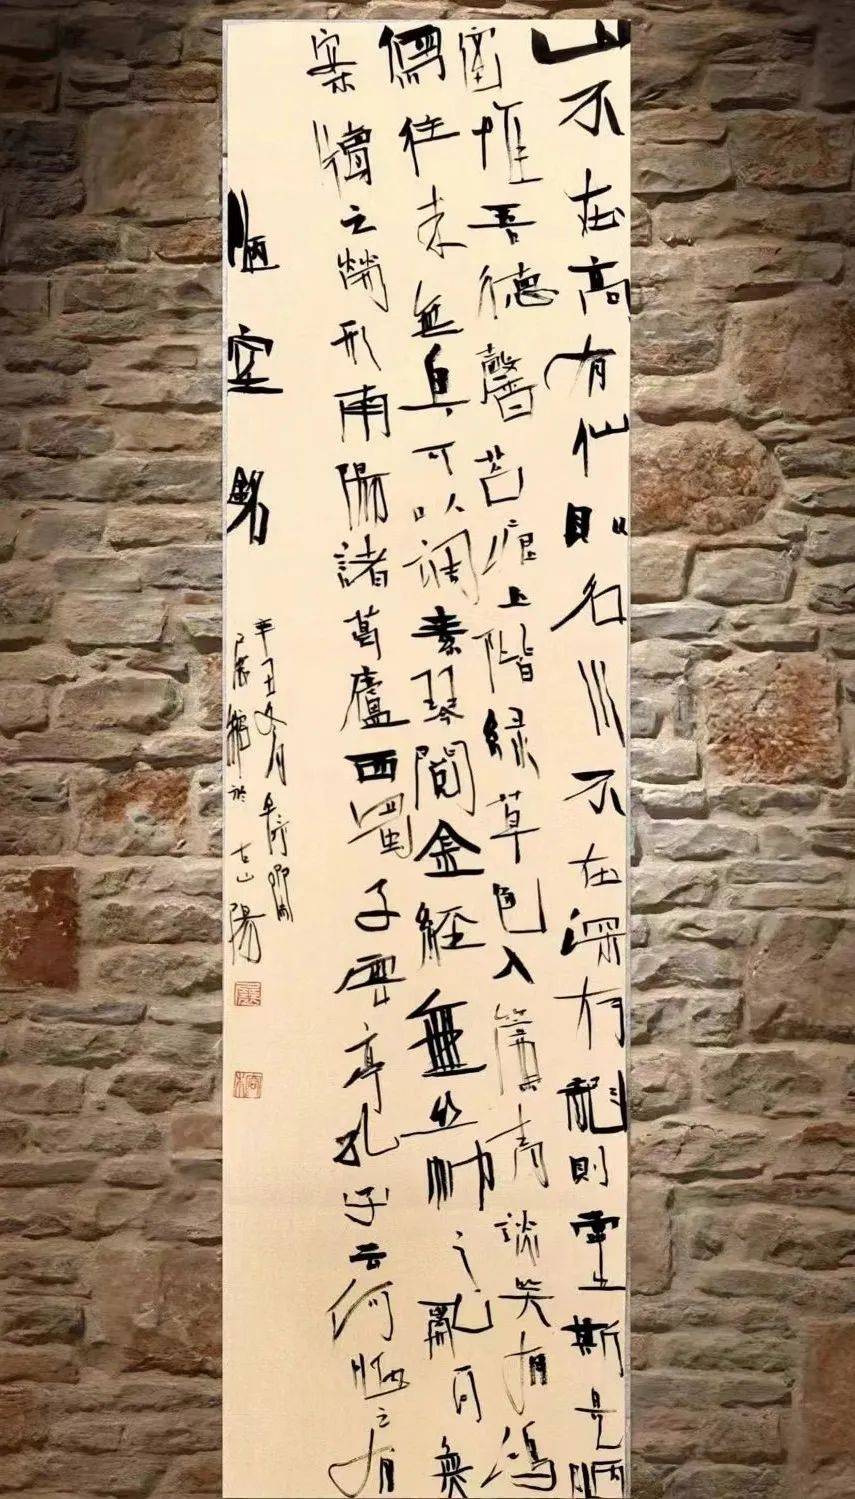 山不在高有仙則名川不在深有龍則靈斯是陋
室惟吾德馨苔痕上階緑草色入簾青談笑有鴻
儒往来無白丁可以調素琴閲金經無丝竹之亂耳無
案牘之勞形南陽諸葛廬西蜀子雲亭孔子云何陋之有
陋室銘
辛丑冬月
於古山陽